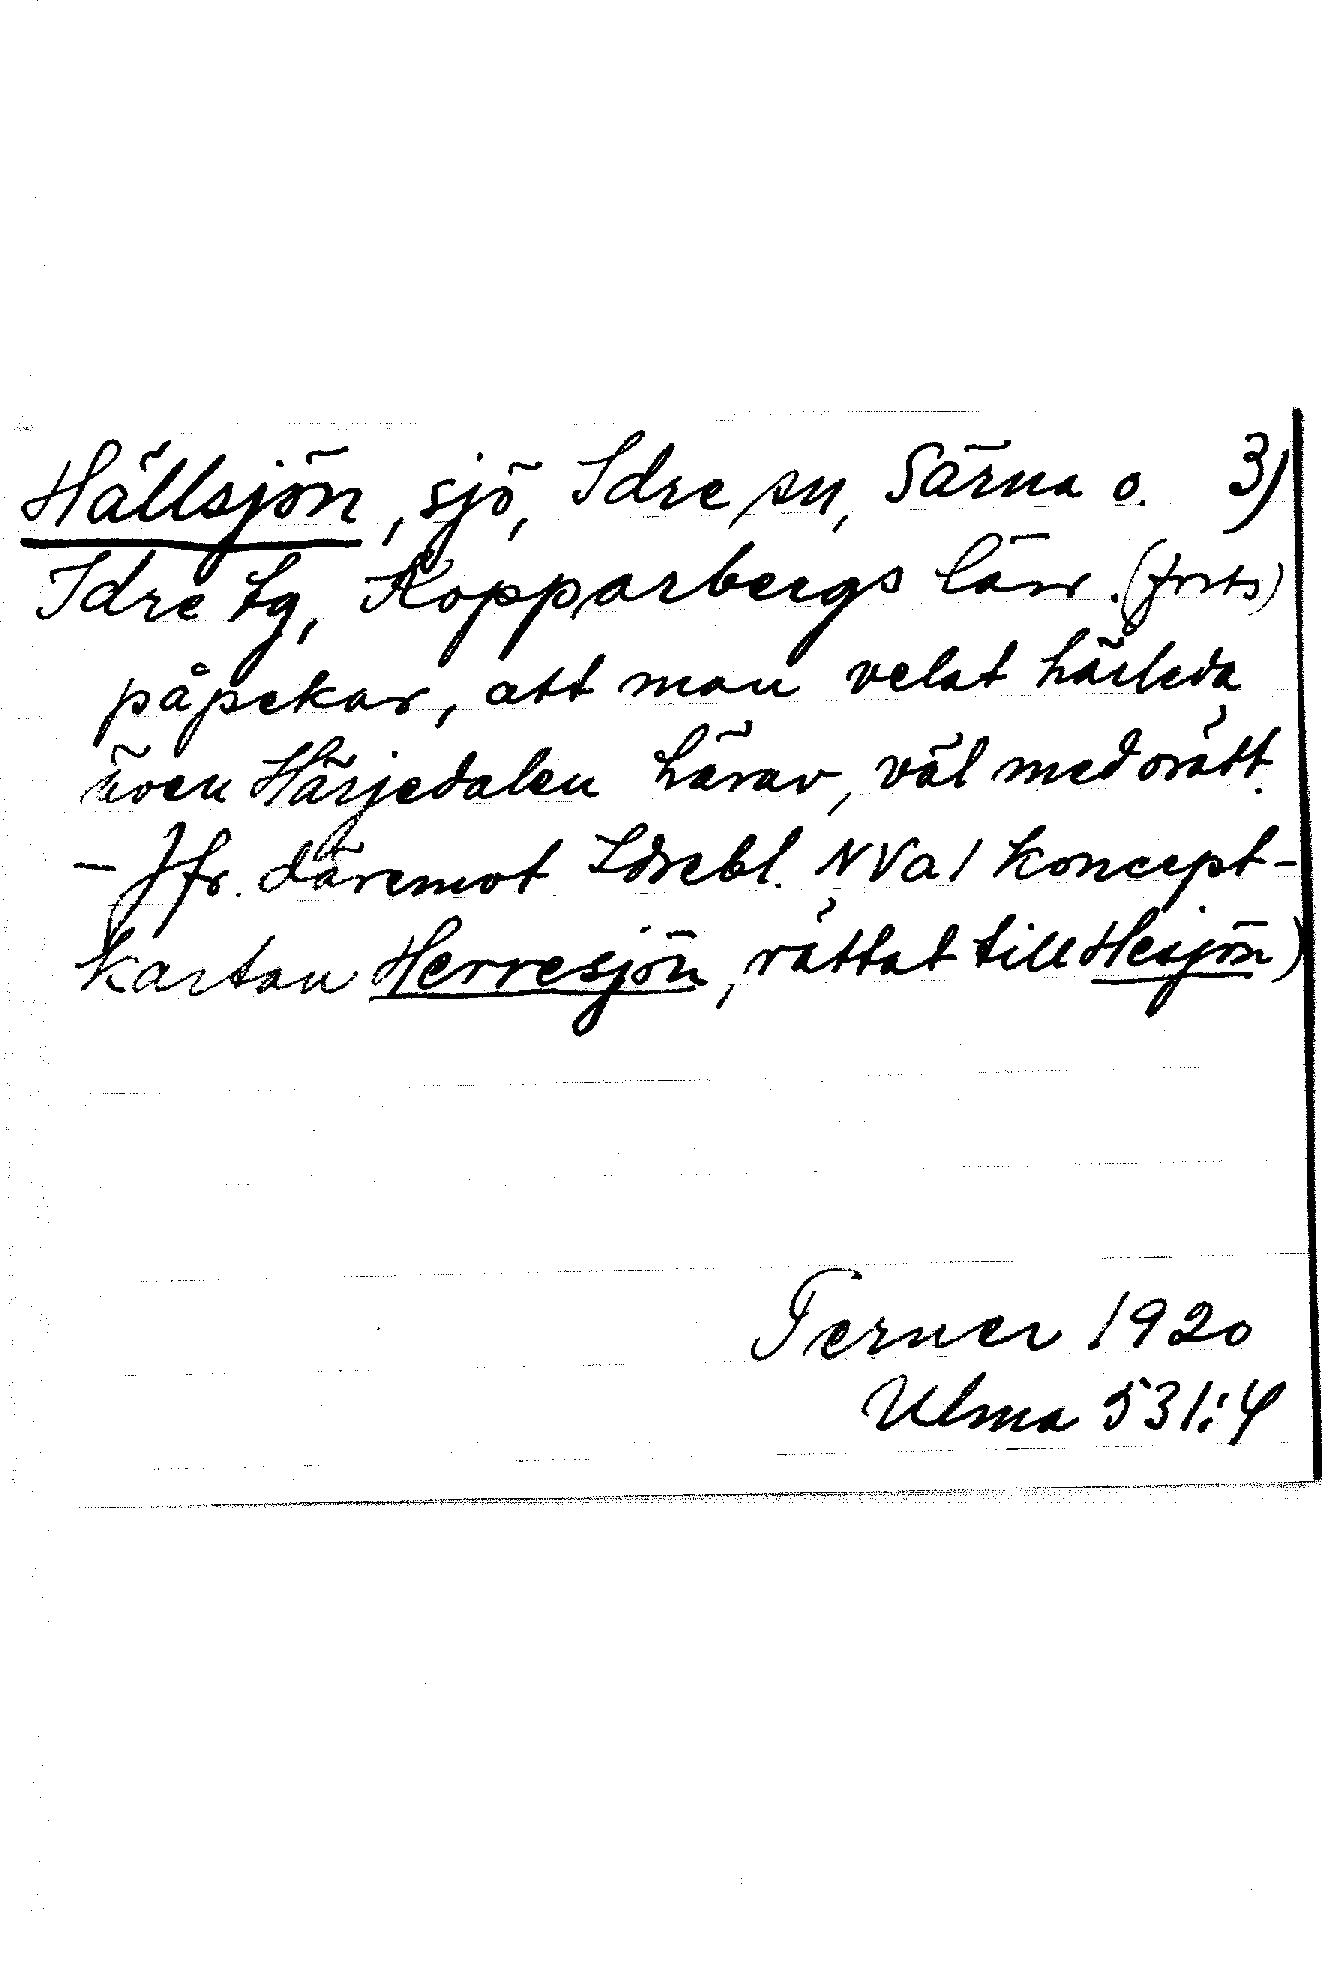 Hällsjön, sjö, Idre sn, Särna o. 3)
Idre tg, Kopparbergs län. (forts)
påpekar, att man velat härleda
även Härjedalen härav, väl med orätt.
– Jfr. däremot Idrebl. NVa 1 koncept-
kartan Herresjön, rättat till Hesjön)
Terner 1920
Ulma 531:4